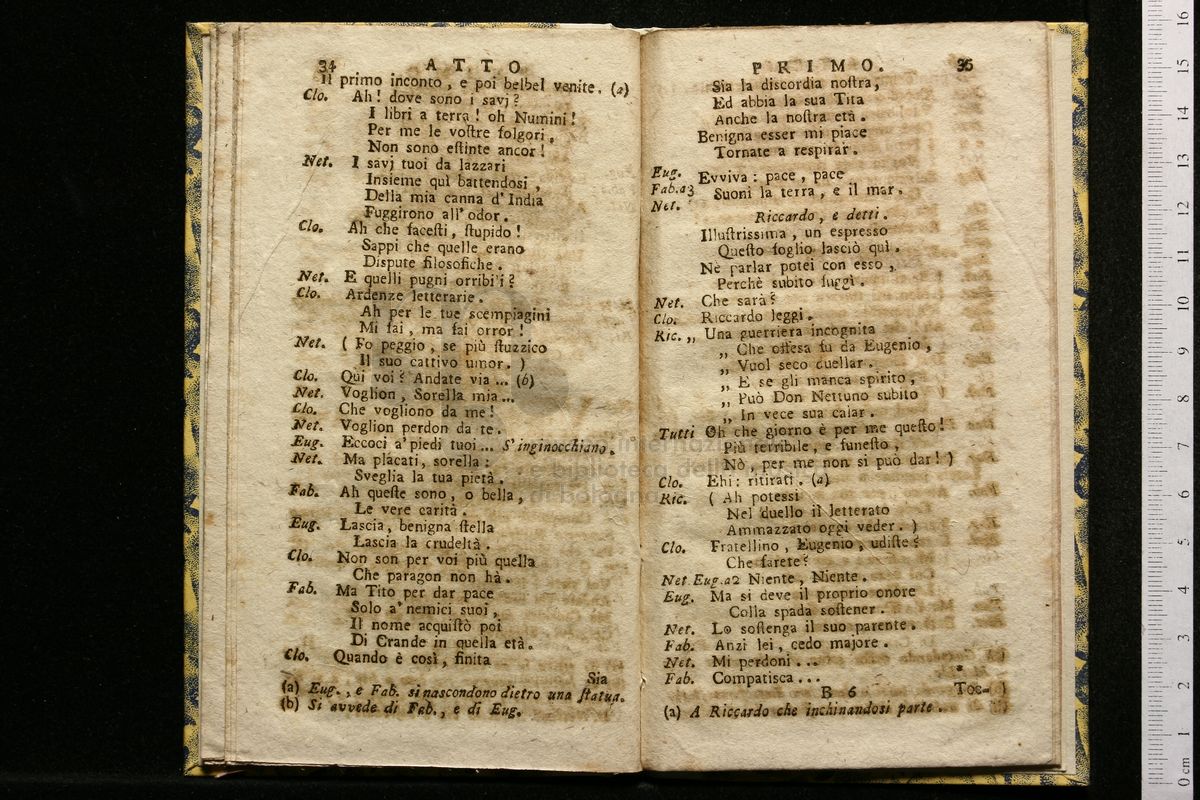 34 ATTO
Il primo inconto, e poi belbel venite. (a)
Clo. Ah! dove sono i savj?
I libri a terra! oh Numini!
Per me le voſtre folgori,
Non sono eſtinte ancor!
Net. I savj tuoi da lazzari
Insieme quì battendosi,
Della mia canna d'India
Fuggirono all'odor.
Clo. Ah che faceſti, ſtupido!
Sappi che quelle erano
Dispute filosofiche.
Net. E quelli pugni orribili?
Clo. Ardenze letterarie.
Ah per le tue scempiagini
Mi fai, ma fai orror!
Net. ( Fo peggio, se più ſtuzzico
Il suo cattivo umor. )
Clo. Qùi voi? Andate via ... (b)
Net. Voglion, Sorella mia ...
Clo. Che vogliono da me!
Net. Voglion perdon da te.
Eug. Eccoci a'piedi tuoi ... S'inginocchiano.
Net. Ma placati, sorella:
Sveglia la tua pietà.
Fab. Ah queſte sono, o bella,
Le vere carità.
Eug. Lascia, benigna ſtella
Lascia la crudeltà.
Clo. Non son per voi più quella
Che paragon non hà.
Fab. Ma Tito per dar pace
Solo a'nemici suoi,
Il nome acquiſtò poi
Di Grande in quella età.
Clo. Quando è così, finita
Sia
(a) Eug., e Fab. si nascondono dietro una ſtatua.
(b) Si avvede di Fab., e di Eug.
PRIMO. 35
Sia la discordia noſtra,
Ed abbia la sua Tita
Anche la noſtra età.
Benigna esser mi piace
Tornate a respirar.
Eug.
Fab. a3
Net.
Evviva: pace, pace
Suoni la terra, e il mar.
Riccardo, e detti.
Illuſtrissima, un espresso
Queſto foglio lasciò quì.
Nè parlar potei con esso,
Perchè subito fuggì.
Net. Che sarà?
Clo. Riccardo leggi.
Ric. „ Una guerriera incognita
„ Che offesa fu da Eugenio,
„ Vuol seco duellar.
„ E se gli manca spirito,
„ Può Don Nettuno subito
„ In vece sua calar.
Tutti Oh che giorno è per me queſto!
Più terribile, e funeſto,
Nò, per me non si può dar! )
Clo. Ehi: ritirati. (a)
Ric. ( Ah potessi
Nel duello il letterato
Ammazzato oggi veder. )
Clo. Fratellino, Eugenio, udiſte?
Che farete?
Net. Eug. a2 Niente, Niente.
Eug. Ma si deve il proprio onore
Colla spada soſtener.
Net. Lo soſtenga il suo parente.
Fab. Anzi lei, cedo majore.
Net. Mi perdoni ...
Fab. Compatisca ...
B 6 Tos-
(a) A Riccardo che inchinandosi parte.